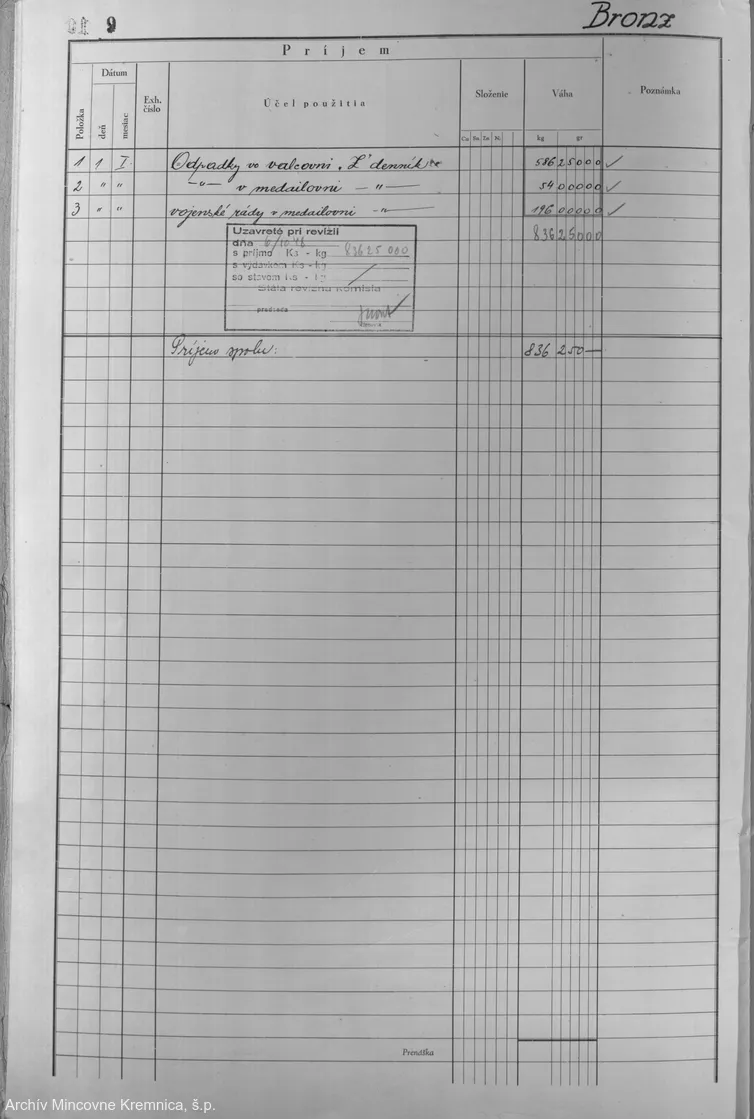 9
Bronz
Príjem
Položka
Dátum
deň
mesiac
Exh. číslo
Účel použitia
Složenie
Cu Sn Zn Ni
Váha
kg gr
Poznámka
1 1 I. Odpadky vo valcovni „Z" denník 586 25000 ✓
2 " " —"— v medailovni —"— 54 00000 ✓
3 " " vojenské rády v medailovni —"— 196 00000 ✓
836 25000
Uzavreté pri revízii
dňa 6/10.46
s príjmo Ks - kg 83625 000
s výdavkom Ks - kg
so stavom Ks - kg
Stála revízna komisia
predseda
Príjem spolu: 836 250—
Prenáška
Archív Mincovne Kremnica, š.p.